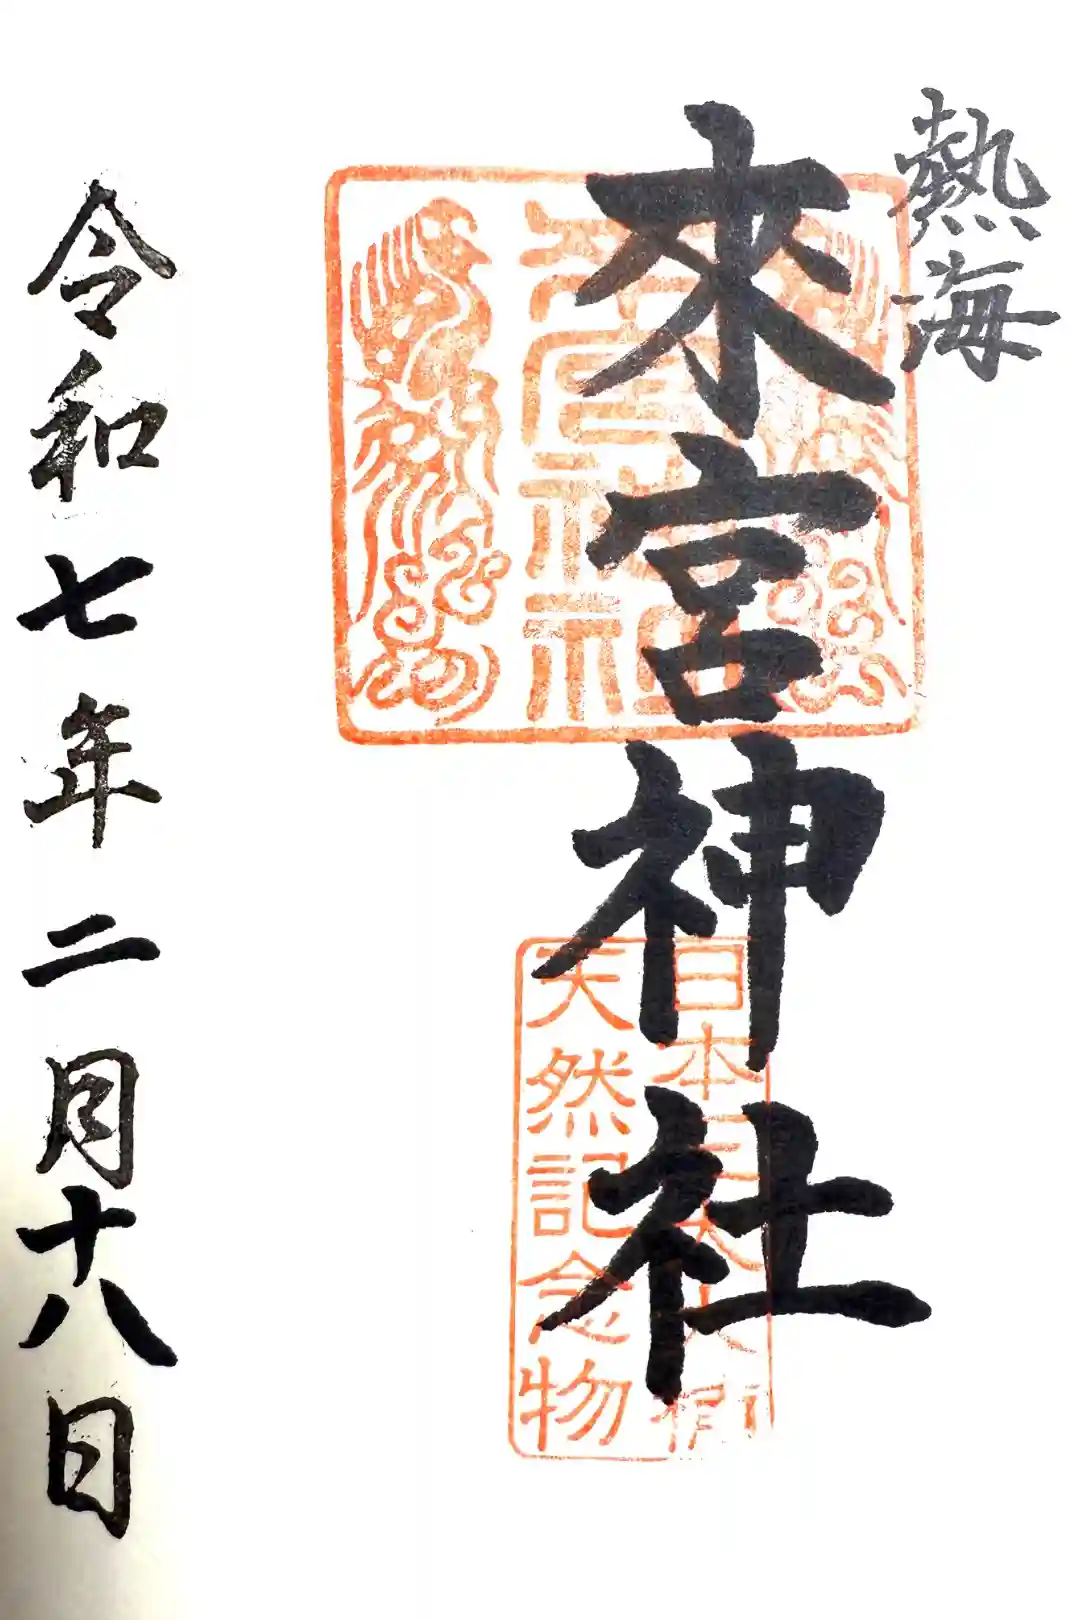 熱海
來宮神社
來宮神社
日本三大大樹
天然記念物
令和七年二月十八日